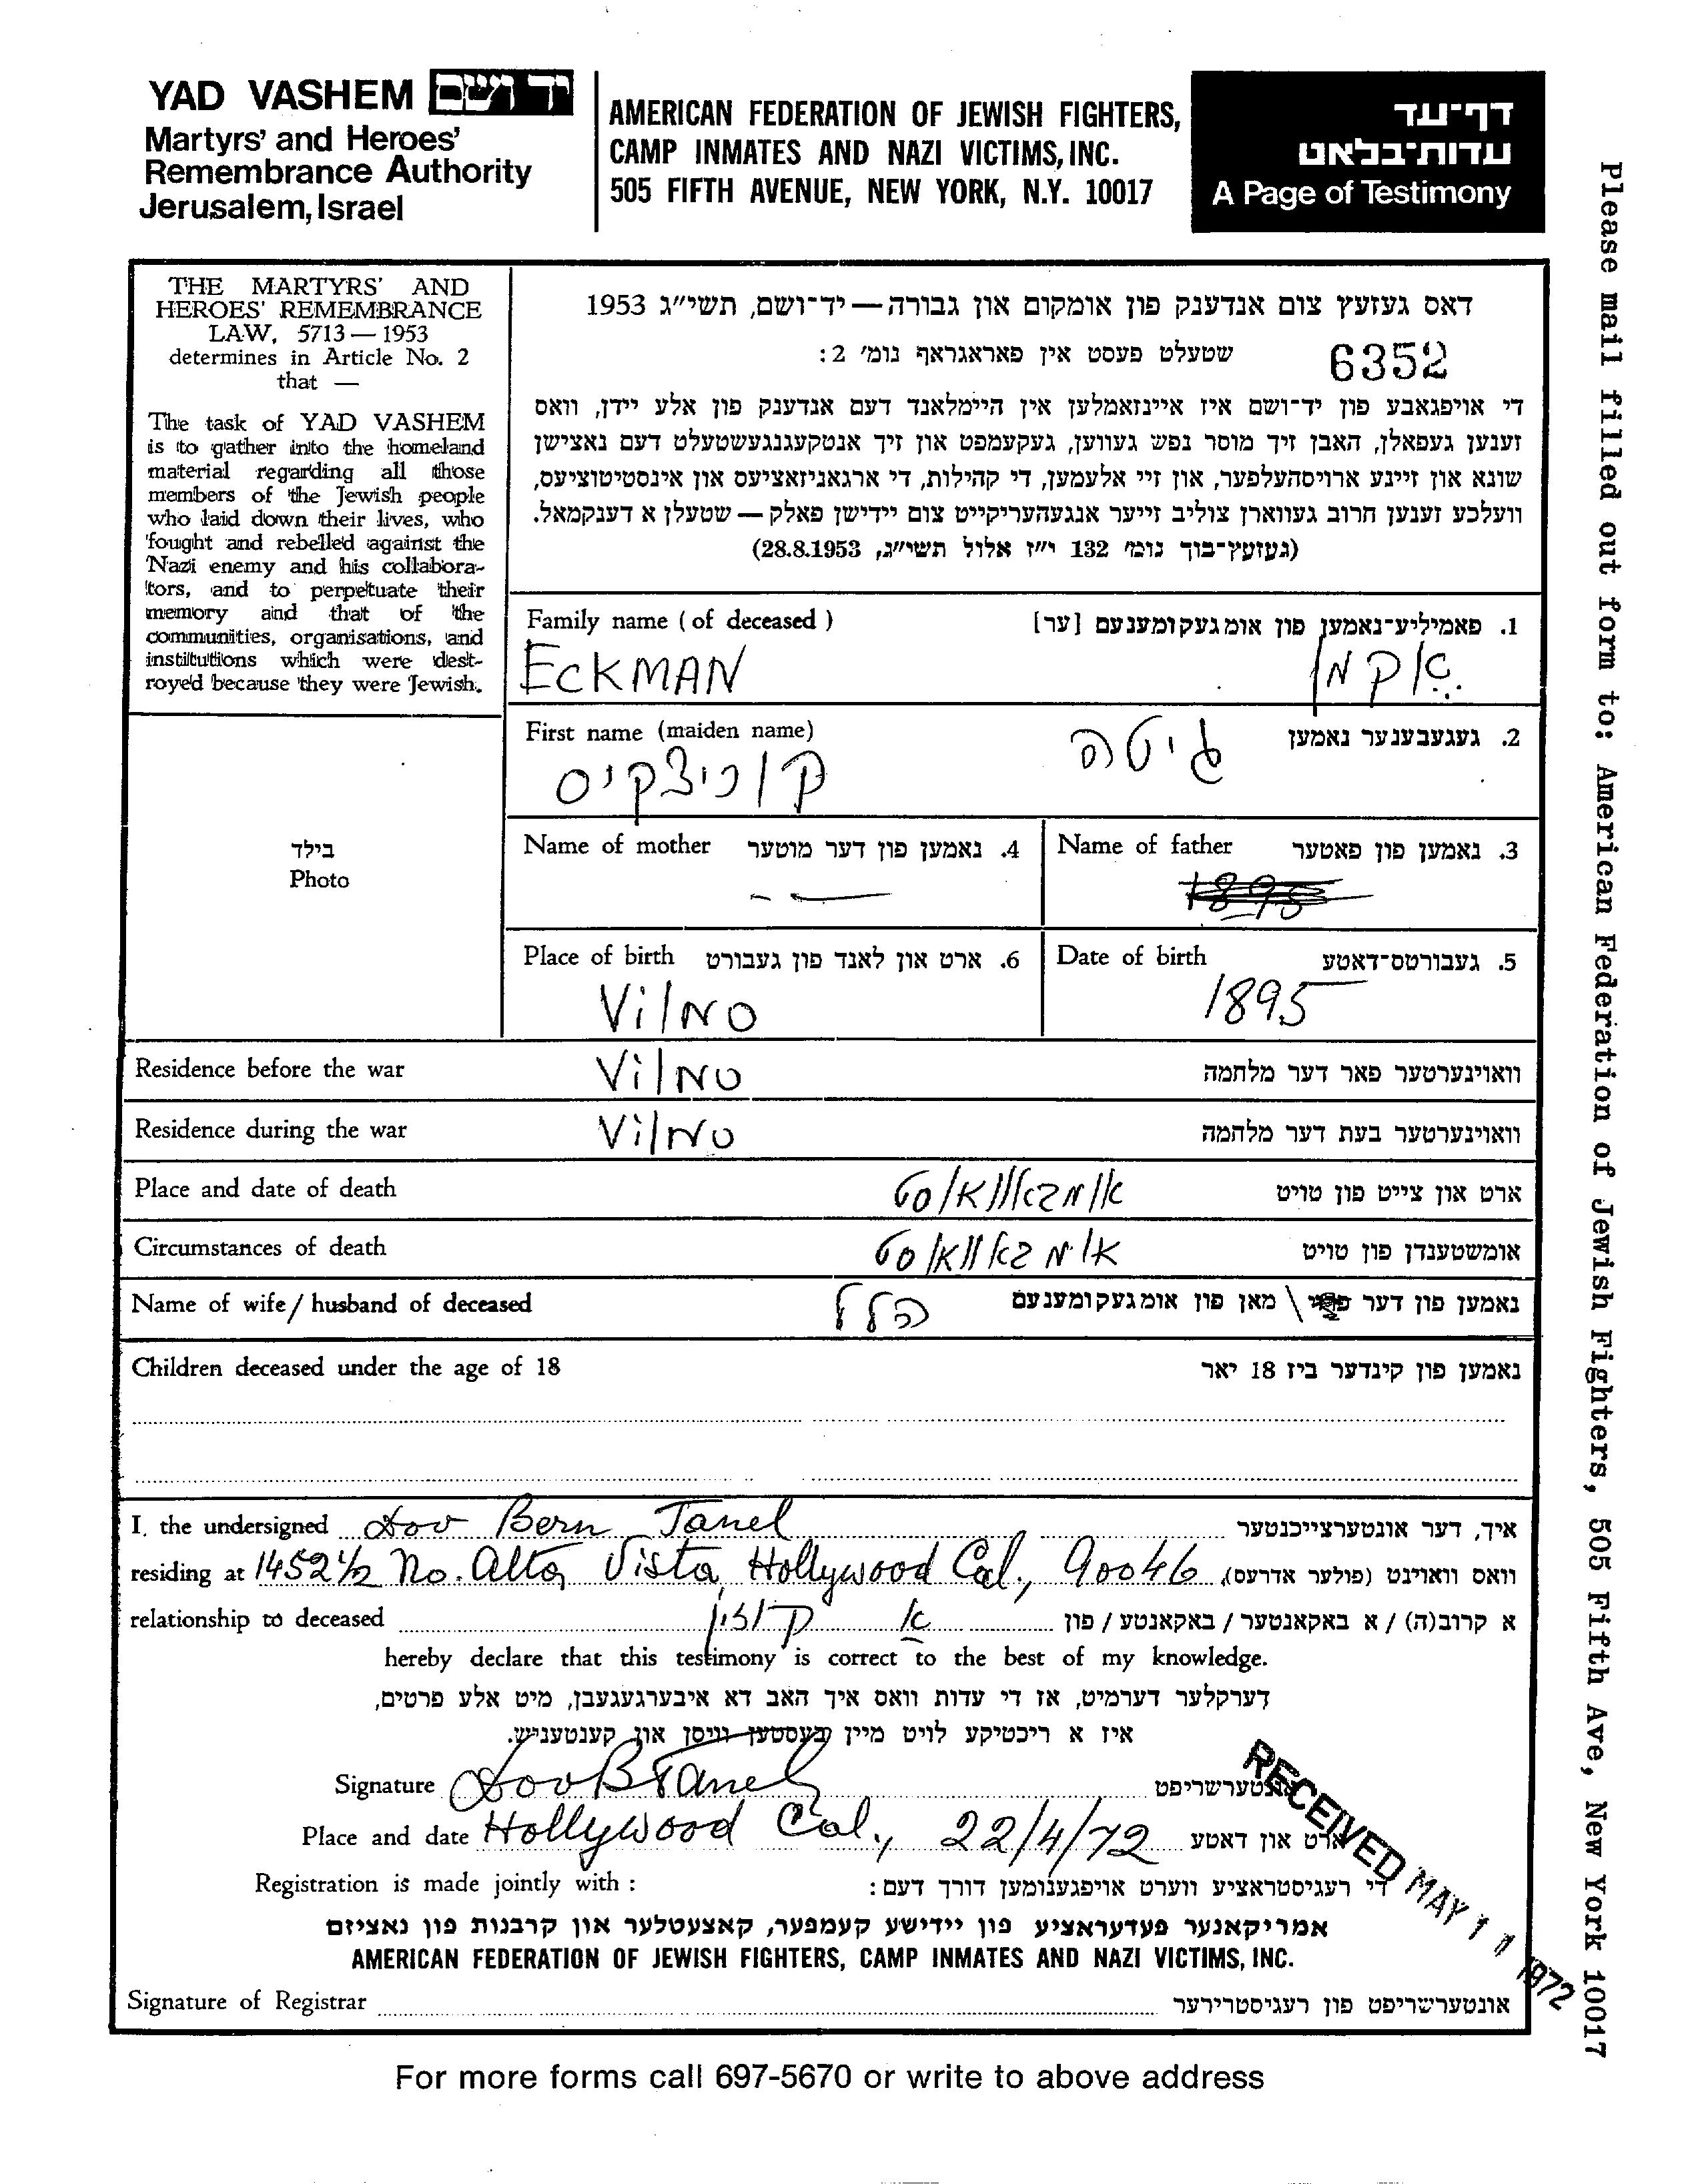 YAD VASHEM יד ושם
Martyrs' and Heroes'
Remembrance Authority
Jerusalem, Israel
AMERICAN FEDERATION OF JEWISH FIGHTERS,
CAMP INMATES AND NAZI VICTIMS, INC.
505 FIFTH AVENUE, NEW YORK, N.Y. 10017
דף-עד
עדות-בלאט
A Page of Testimony
Please mail filled out form to: American Federation of Jewish Fighters, 505 Fifth Ave, New York 10017
THE MARTYRS' AND
HEROES' REMEMBRANCE
LAW, 5713 — 1953
determines in Article No. 2
that —
The task of YAD VASHEM
is to gather into the homeland
material regarding all those
members of the Jewish people
who laid down their lives, who
fought and rebelled against the
Nazi enemy and his collabora-
tors, and to perpetuate their
memory and that of the
communities, organisations, and
institutions which were dest-
royed because they were Jewish.
דאס געזעץ צום אנדענק פון אומקום און גבורה — יד-ושם, תשי"ג 1953
שטעלט פעסט אין פאראגראף נומ' 2:
6352
די אויפגאבע פון יד-ושם איז איינזאמלען אין היימלאנד דעם אנדענק פון אלע יידן, וואס
זענען געפאלן, האבן זיך מוסר נפש געווען, געקעמפט און זיך אנטקעגנגעשטעלט דעם נאצישן
שונא און זיינע ארויסהעלפער, און זיי אלעמען, די קהילות, די ארגאניזאציעס און אינסטיטוציעס,
וועלכע זענען חרוב געווארן צוליב זייער אנגעהעריקייט צום יידישן פאלק — שטעלן א דענקמאל.
(געזעץ-בוך נומ' 132 י"ז אלול תשי"ג, 28.8.1953)
Family name (of deceased) 1. פאמיליע-נאמען פון אומגעקומענעם [ער]
ECKMAN אקמן
First name (maiden name) 2. געגעבענער נאמען
גיטה
קוניצקיס
בילד
Photo
Name of mother 4. נאמען פון דער מוטער
Name of father 3. נאמען פון פאטער
1895
Place of birth 6. ארט און לאנד פון געבורט
Vilno
Date of birth 5. געבורטס-דאטע
1895
Residence before the war Vilno וואוינערטער פאר דער מלחמה
Residence during the war Vilno וואוינערטער בעת דער מלחמה
Place and date of death אומבאוואוסט ארט און צייט פון טויט
Circumstances of death אומבאוואוסט אומשטענדן פון טויט
Name of wife / husband of deceased הלל נאמען פון דער פרוי \ מאן פון אומגעקומענעם
Children deceased under the age of 18 נאמען פון קינדער ביז 18 יאר
I, the undersigned Dov Bern Tanel איך, דער אונטערצייכנטער
residing at 1452 1/2 No. Alta Vista Hollywood Cal., 90046 וואס וואוינט (פולער אדרעס),
relationship to deceased א קוזין א קרוב(ה) / א באקאנטער / באקאנטע / פון
hereby declare that this testimony is correct to the best of my knowledge.
דערקלער דערמיט, אז די עדות וואס איך האב דא איבערגעגעבן, מיט אלע פרטים,
איז א ריכטיקע לויט מיין בעסטען וויסן און קענטעניש.
Signature Dov B Tanel אונטערשריפט
Place and date Hollywood Cal., 22/4/72 ארט און דאטע
RECEIVED MAY 11 1972
Registration is made jointly with : די רעגיסטראציע ווערט אויפגענומען דורך דעם:
אמריקאנער פעדעראציע פון יידישע קעמפער, קאצעטלער און קרבנות פון נאציזם
AMERICAN FEDERATION OF JEWISH FIGHTERS, CAMP INMATES AND NAZI VICTIMS, INC.
Signature of Registrar אונטערשריפט פון רעגיסטרירער
For more forms call 697-5670 or write to above address